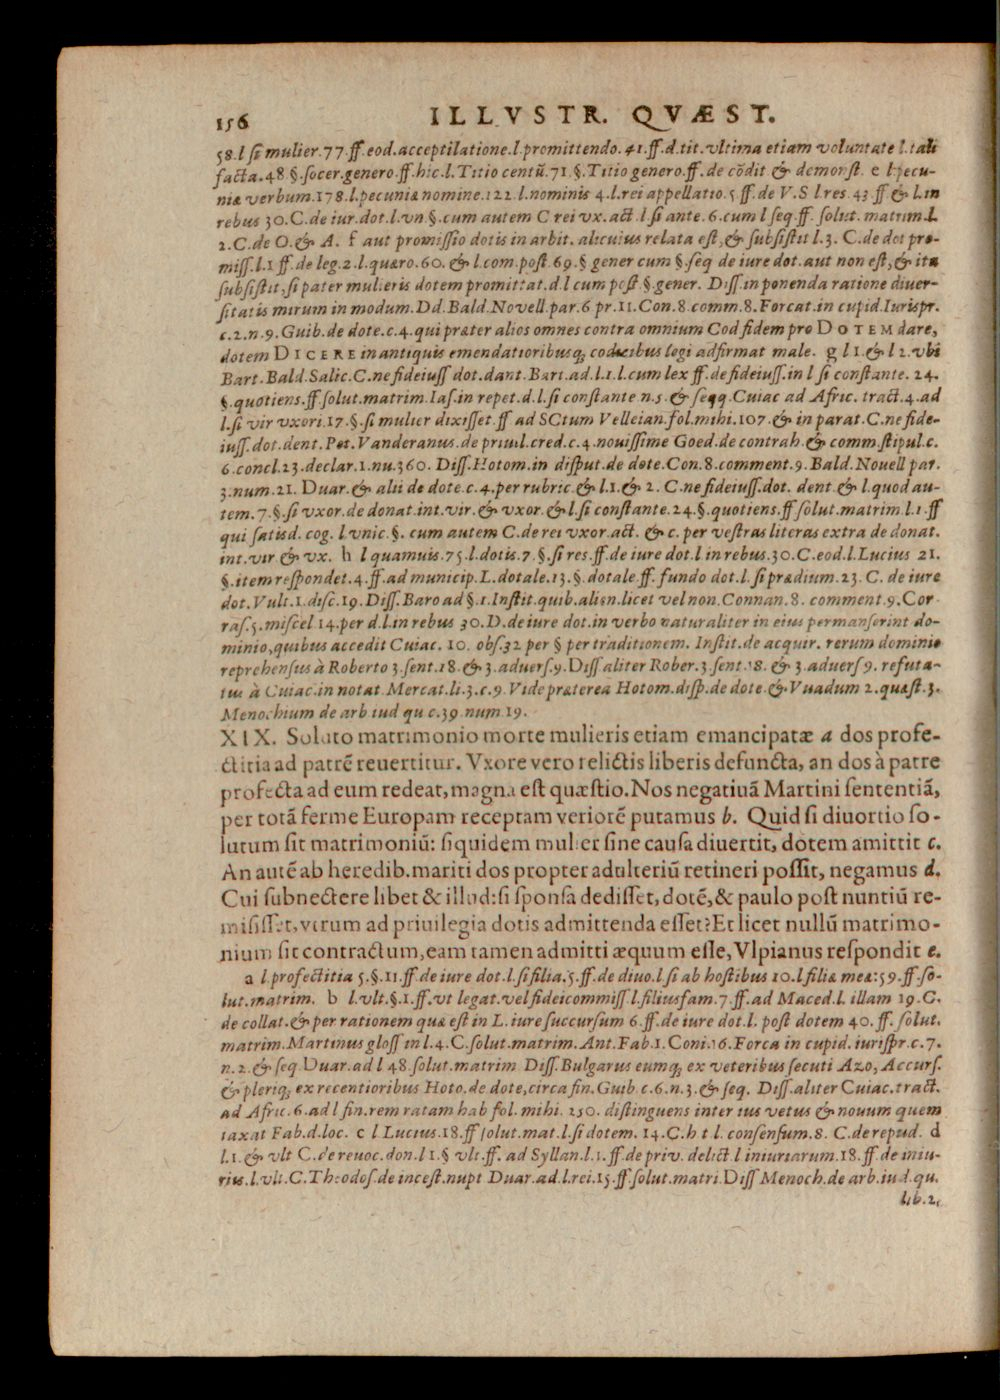 156 ILLVSTR. QVÆST.
58.l si mulier.77.ff.eod.acceptilatione.l.promittendo.41.ff.d.tit.vltima etiam voluntate l.tali
facta.48.§.socer.genero.ff.hic.l.Titio centũ.71.§.Titio genero.ff.de cõdit & demonst. e l pecu-
niæ verbum.178.l.pecuniæ nomine.122.l.nominis 4.l.rei appellatio.5.ff.de V.S l.res.43.ff & l.in
rebus 30.C.de iur.dot.l.vn §.cum autem C rei vx.act.l.si ante.6.cum l seq.ff. solut. matrim.l.
2.C.de O.& A. f aut promissio dotis in arbit. alicuius relata est,& subsistit l.3. C.de dot pro-
miss.l.1 ff.de leg.2.l.quæro.60. & l.com.post.69.§ gener cum §.seq de iure dot.aut non est,& ita
subsistit,si pater mulieris dotem promittat.d.l cum post §.gener. Diss.in ponenda ratione diuer-
sitatis mirum in modum.Dd.Bald.Novell.par.6 pr.11.Con.8.comm.8.Forcat.in cupid.Iurispr.
c.2.n.9.Guib.de dote.c.4.qui præter alios omnes contra omnium Cod fidem pro DOTEM dare,
dotem DICERE in antiquis emendatioribusq; codicibus legi adfirmat male. g l 1.& l 2.vbi
Bart.Bald.Salic.C.ne fideiuss dot.dant.Bart.ad.l.1.l.cum lex ff.de fideiuss.in l si constante. 24.
§.quotiens.ff solut.matrim.Ias.in repet.d.l.si constante n.5.& seqq.Cuiac ad Afric. tract.4.ad
l.si vir vxori.17.§.si mulier dixisset.ff ad SCtum Velleian.fol.mihi.107.& in parat.C.ne fide-
iuss.dot.dent.Pet.Vanderanus.de priuil.cred.c.4.nouissime Goed.de contrah.& comm.stipul.c.
6.concl.23.declar.1.nu.360. Diss.Hotom.in disput.de dote.Con.8.comment.9.Bald.Nouell par.
3.num.21. Duar.& alii de dote.c.4.per rubric.& l.1.& 2. C.ne fideiuss.dot. dent.& l.quod au-
tem.7.§.si vxor.de donat.int.vir.& vxor.& l.si constante.24.§.quotiens.ff solut.matrim.l.1.ff
qui satisd. cog. l.vnic.§. cum autem C.de rei vxor.act. & c. per vestras literas extra de donat.
int.vir & vx. h l quamuis.75.l.dotis.7.§.si res.ff.de iure dot.l in rebus.30.C.eod.l.Lucius 21.
§.item respondet.4.ff.ad municip.L.dotale.13.§.dotale.ff.fundo dot.l.si prædium.23. C. de iure
dot.Vult.1.disc.19.Diss.Baro ad §.1.Instit.quib.alien.licet vel non.Connan.8. comment.9.Cor
ras.5.miscel 14.per d.l.in rebus 30.D.de iure dot.in verbo naturaliter in eius permanserint do-
minio,quibus accedit Cuiac. 10. obs.32 per § per traditionem. Instit.de acquir. rerum dominio
reprehensus à Roberto 3.sent.18.& 3.aduers.9.Diss aliter Rober.3.sent.18. & 3.aduers 9. refuta-
tus à Cuiac.in notat Mercat.li.3.c.9 Vide præterea Hotom.disp.de dote.& Vuadum 2.quæst.3.
Menochium de arb iud qu c.39 num 19.
XIX. Soluto matrimonio morte mulieris etiam emancipatæ a dos profe-
ctitia ad patrẽ reuertitur. Vxore vero relictis liberis defuncta, an dos à patre
profecta ad eum redeat, magna est quæstio. Nos negatiuã Martini sententiã,
per totã ferme Europam receptam veriorẽ putamus b. Quid si diuortio so-
lutum sit matrimoniũ: siquidem mulier sine causa diuertit, dotem amittit c.
An autẽ ab heredib.mariti dos propter adulteriũ retineri possit, negamus d.
Cui subnectere libet & illud:si sponsa dedisset, dotẽ,& paulo post nuntiũ re-
misisset, vtrum ad priuilegia dotis admittenda esset?Et licet nullũ matrimo-
nium sit contractum, eam tamen admitti æquum esse, Vlpianus respondit e.
a l.profectitia 5.§.11.ff.de iure dot.l.si filia.5.ff.de diuo.l.si ab hostibus 10.l.filiæ meæ:59.ff so-
lut.matrim. b l.vlt.§.1.ff.vt legat.vel fideicommiss.l.filiusfam.7.ff.ad Maced.l. illam 19.C.
de collat.& per rationem quæ est in L.iure succursum 6.ff.de iure dot.l. post dotem 40.ff. solut.
matrim.Martinus gloss in l.4.C.solut.matrim.Ant.Fab.1.Coni.16.Forca in cupid.iurispr.c.7.
n.2.& seq Duar.ad l 48.solut.matrim Diss.Bulgarus eumq; ex veteribus secuti Azo, Accurs.
& pleriq; ex recentioribus Hoto.de dote,circa fin.Guib c.6.n.3.& seq. Diss.aliter Cuiac.tract.
ad Afric.6.ad l fin.rem ratam hab fol. mihi. 250. distinguens inter ius vetus & nouum quem
taxat Fab.d.loc. c l Lucius.18.ff solut.mat.l.si dotem. 14.C.h t l. consensum.8. C.de repud. d
l.1.& vlt C.de reuoc.don.l 1.§ vlt.ff. ad Syllan.l.1.ff.de priv. delict l iniuriarum.18.ff.de iniu-
riis.l.vlt.C.Theodos.de incest.nupt Duar.ad.l.rei.15.ff.solut.matri Diss Menoch.de arb.iud.qu.
lib.2.